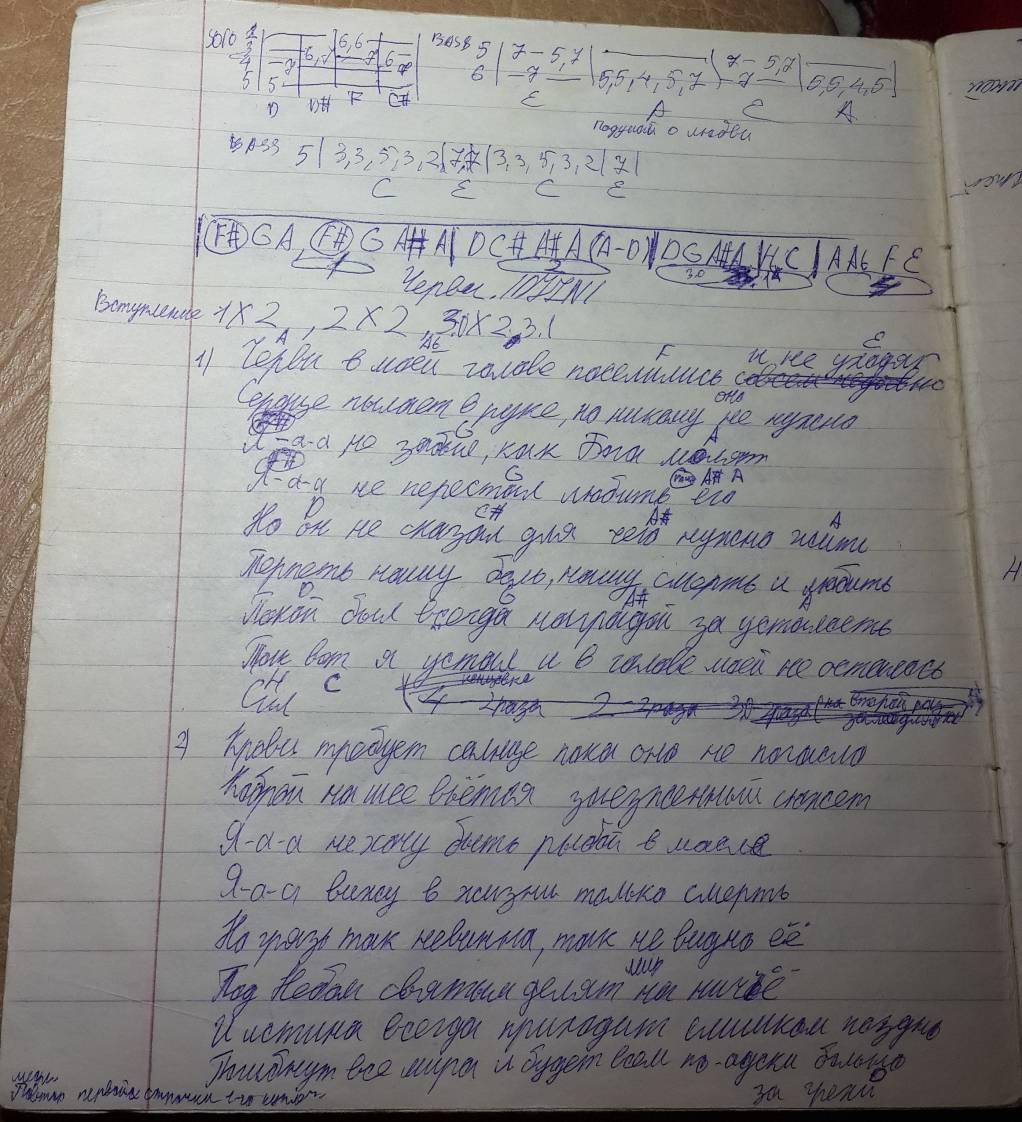 соло 2 3 4 5 | 5 -7 | 6,7 | 6,6 -7 | 6 -7 |
D D# F C#
BASS 5 | 7 - 5,7 | | 7 - 5,7 | |
6 | -7 - | 5,5,4,5,7 | 7 - | 5,5,4,5 |
E A E A
Подумай о любви
BASS 5 | 3,3,5,3,2 | 7,7 | 3,3,5,3,2 | 7 |
C E C E
F# G A, F# G A# A | D C# A# A (A-D) | D G A# A, H C | A Ab F E
1 2 3.0 3.1 4
Черви.
Вступление 1X2, 2X2, 3.0X2, 3.1
A Ab F E
1) Черви в моей голове поселились и не уходят
Сердце пылает в руке, но никому оно не нужно
F# G A
Я-а-а не забыл, как Бога молят
F# G A# A
Я-а-а не перестал любить его
D C# A# A
Но он не сказал для чего нужно жить
Терпеть нашу боль, нашу смерть и любить
D G A# A
Покой был всегда наградой за усталость
Так вот я устал и в голове моей не осталось
H C
Сил
4 2раза 2-2раза 3.0 2раза (на второй раз
2) Крови требует солнце пока оно не погасло
Коброй на шее вьётся заезженный сюжет
Я-а-а не хочу быть рыбой в масле
Я-а-а вижу в жизни только смерть
Но грязь так невинна, так не видно её
Под Небом святым делят мир на ничьё
И истина всегда приходит слишком поздно
Погибнут все мира и будет всем по-адски больно
за грехи
Повтор первой строчки 1-го